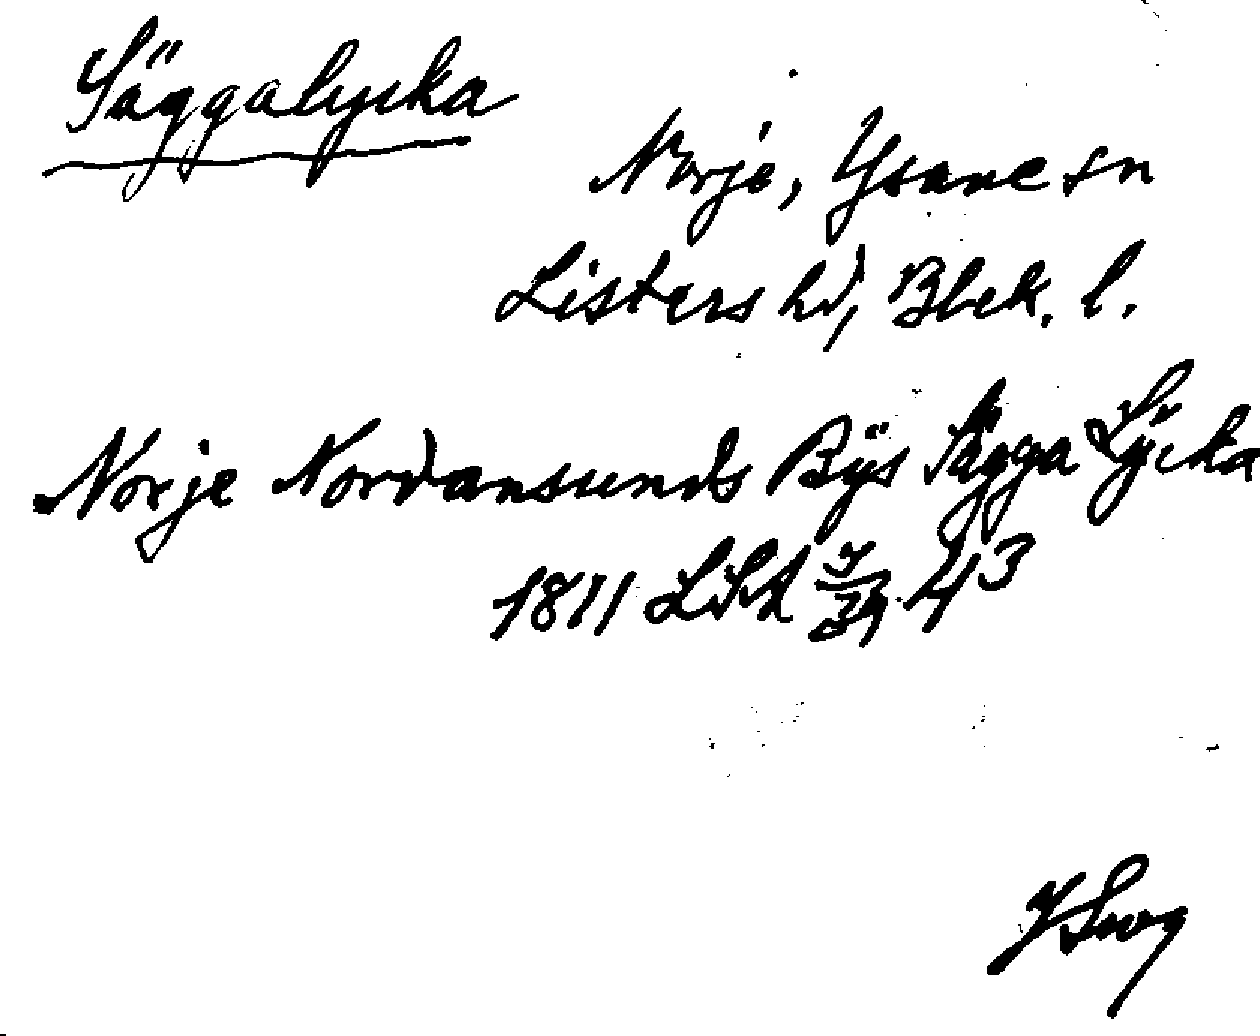 Säggalycka
Norje, Ysane sn
Listers hd, Blek. l.
Norje Nordansunds Bÿs Sägga Lÿcka
1811 LSA 43